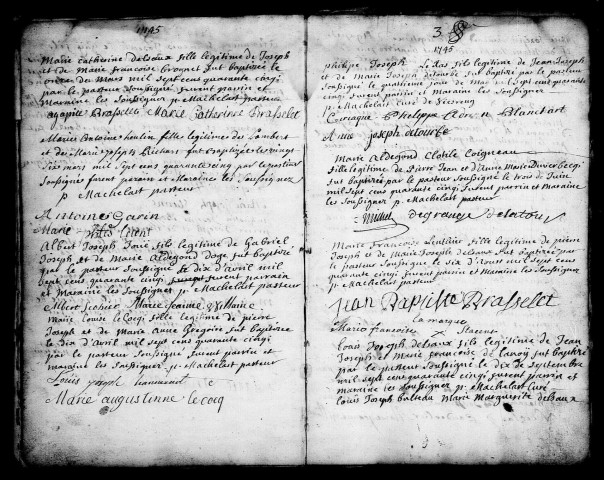 1745
Marie catherine delsaux fille legitime de Joseph
et de Marie francoise Gronnet fut baptizée le
onze de Mars mil sept cens quarante cinqi
par le pasteur soussigné furent parrin et
maraine les soussignez p. Machelart pasteur
agapite Brasselet Marie Catherine Brasselet
Marie Antoine houlin fille legitime de Lambert
et de Marie Joseph Richart fut baptizée le vingt
six mars mil sept cens quarante cinq par le pasteur
soussigné furent parrain et Maraine les soussignez
p Machelart pasteur
Antoine Garin
Marie
Albert Joseph fils legitime de Gabriel
Joseph et de Marie Aldegond Doye fut baptizé
par le pasteur soussigné le dix d'avril mil
sept cens quarante cinqi furent parrin
et Maraine les soussignez p. Machelart pasteur
Albert Marie Jeanne Villaine
marie louise le Cocqi fille legitime de pierre
Joseph et de Marie Anne Gregoire fut baptizée
le dix d'avril mil sept cens quarante cinqi
par le pasteur soussigné furent parrin et
maraine les soussignez p. Machelart pasteur
Louis joseph
Marie augustinne le coq
3
1745
philipe Joseph Le Ras fils legitime de Jean Joseph
et de Marie Joseph detourbe fut baptizé par le pasteur
soussigné le quatrieme jour de mil sept cens quarante
cinqi furent parrin et maraine les soussignez
p Machelart curé de
philippe Blanchart
Anne joseph detourbe
Marie Aldegond Clotile Coigneau
fille legitime de Pierre Jean et d'Anna Marie
fut baptizée par le pasteur soussigné le trois de Juin
mil sept cens quarante cinqi furent parrin et maraine
les soussignez p. Machelart pasteur
degrange delatour
Marie Francoise Leutier fille legitime de pierre
Joseph et de Marie Joseph delsaux fut baptizée par
le pasteur soussigné le dix d'Aout mil sept cens
quarante cinqi furent parrin et Maraine les soussignez
p Machelart pasteur
Jean Baptiste Brasselet
la marque
Marie francoise X
louis Joseph delsaux fils legitime de Jean
Joseph et marie francoise de lavoy fut baptizé
par le pasteur soussigné le dix de septembre
mil sept cens quarante cinqi furent parrin et
maraine les soussignez p. Machelart curé
louis Joseph balteau Marie Marguerite delsaux